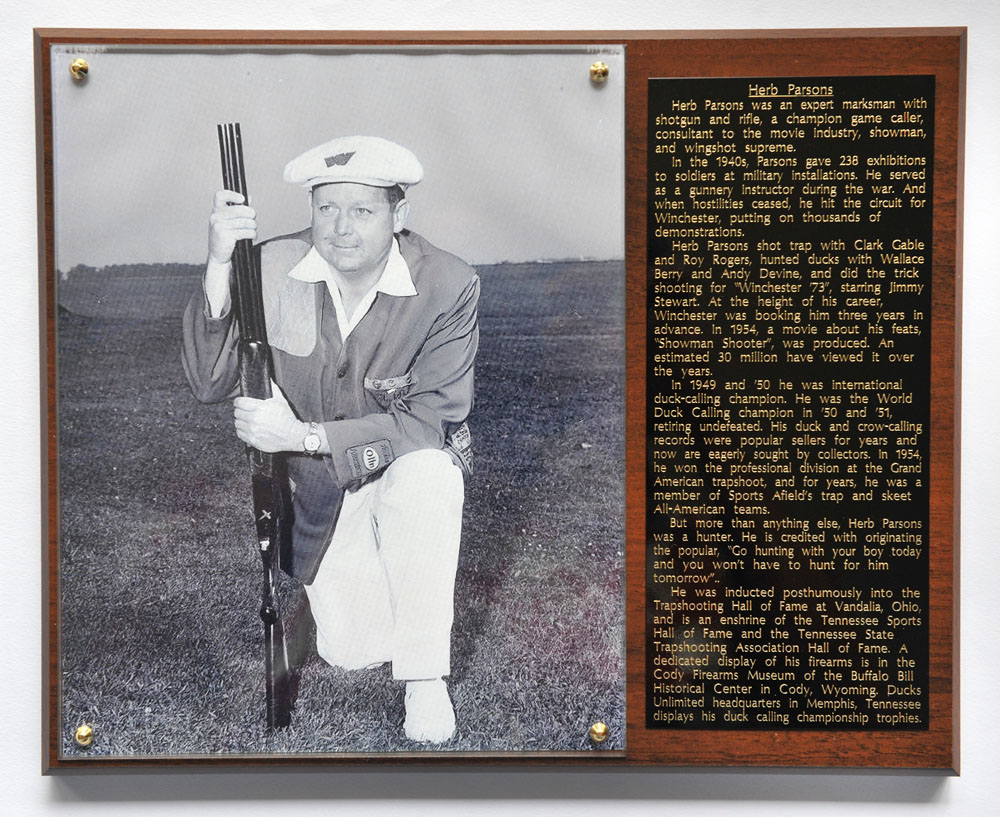 Herb Parsons
Herb Parsons was an expert marksman with
shotgun and rifle, a champion game caller,
consultant to the movie industry, showman,
and wingshot supreme.
In the 1940s, Parsons gave 238 exhibitions
to soldiers at military installations. He served
as a gunnery instructor during the war. And
when hostilities ceased, he hit the circuit for
Winchester, putting on thousands of
demonstrations.
Herb Parsons shot trap with Clark Gable
and Roy Rogers, hunted ducks with Wallace
Berry and Andy Devine, and did the trick
shooting for "Winchester '73", starring Jimmy
Stewart. At the height of his career,
Winchester was booking him three years in
advance. In 1954, a movie about his feats,
"Showman Shooter", was produced. An
estimated 30 million have viewed it over
the years.
In 1949 and '50 he was international
duck-calling champion. He was the World
Duck Calling champion in '50 and '51,
retiring undefeated. His duck and crow-calling
records were popular sellers for years and
now are eagerly sought by collectors. In 1954,
he won the professional division at the Grand
American trapshoot, and for years, he was a
member of Sports Afield's trap and skeet
All-American teams.
But more than anything else, Herb Parsons
was a hunter. He is credited with originating
the popular, "Go hunting with your boy today
and you won't have to hunt for him
tomorrow"..
He was inducted posthumously into the
Trapshooting Hall of Fame at Vandalia, Ohio,
and is an enshrine of the Tennessee Sports
Hall of Fame and the Tennessee State
Trapshooting Association Hall of Fame. A
dedicated display of his firearms is in the
Cody Firearms Museum of the Buffalo Bill
Historical Center in Cody, Wyoming. Ducks
Unlimited headquarters in Memphis, Tennessee
displays his duck calling championship trophies.
W
Olin
X